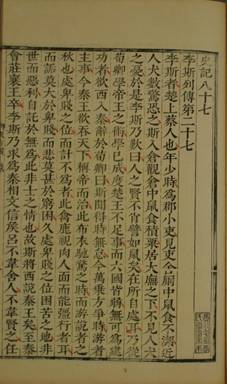 史記八十七
李斯列傳第二十七
李斯者楚上蔡人也年少時為郡小吏見吏舍廁中鼠食不潔近
人犬數驚恐之斯入倉觀倉中鼠食積粟居大廡之下不見人犬
之憂於是李斯乃歎曰人之賢不肖譬如鼠矣在所自處耳乃從
荀卿學帝王之術學已成度楚王不足事而六國皆弱無可為建
功者欲西入秦辭於荀卿曰斯聞得時無怠今萬乘方爭時游者
主事今秦王欲吞天下稱帝而治此布衣馳騖之時而游說者之
秋也處卑賤之位而計不為者此禽鹿視肉人面而能彊行者耳
故詬莫大於卑賤而悲莫甚於窮困久處卑賤之位困苦之地非
世而惡利自託於無為此非士之情也故斯將西說秦王矣至秦
會莊襄王卒李斯乃求為秦相文信侯呂不韋舍人不韋賢之任